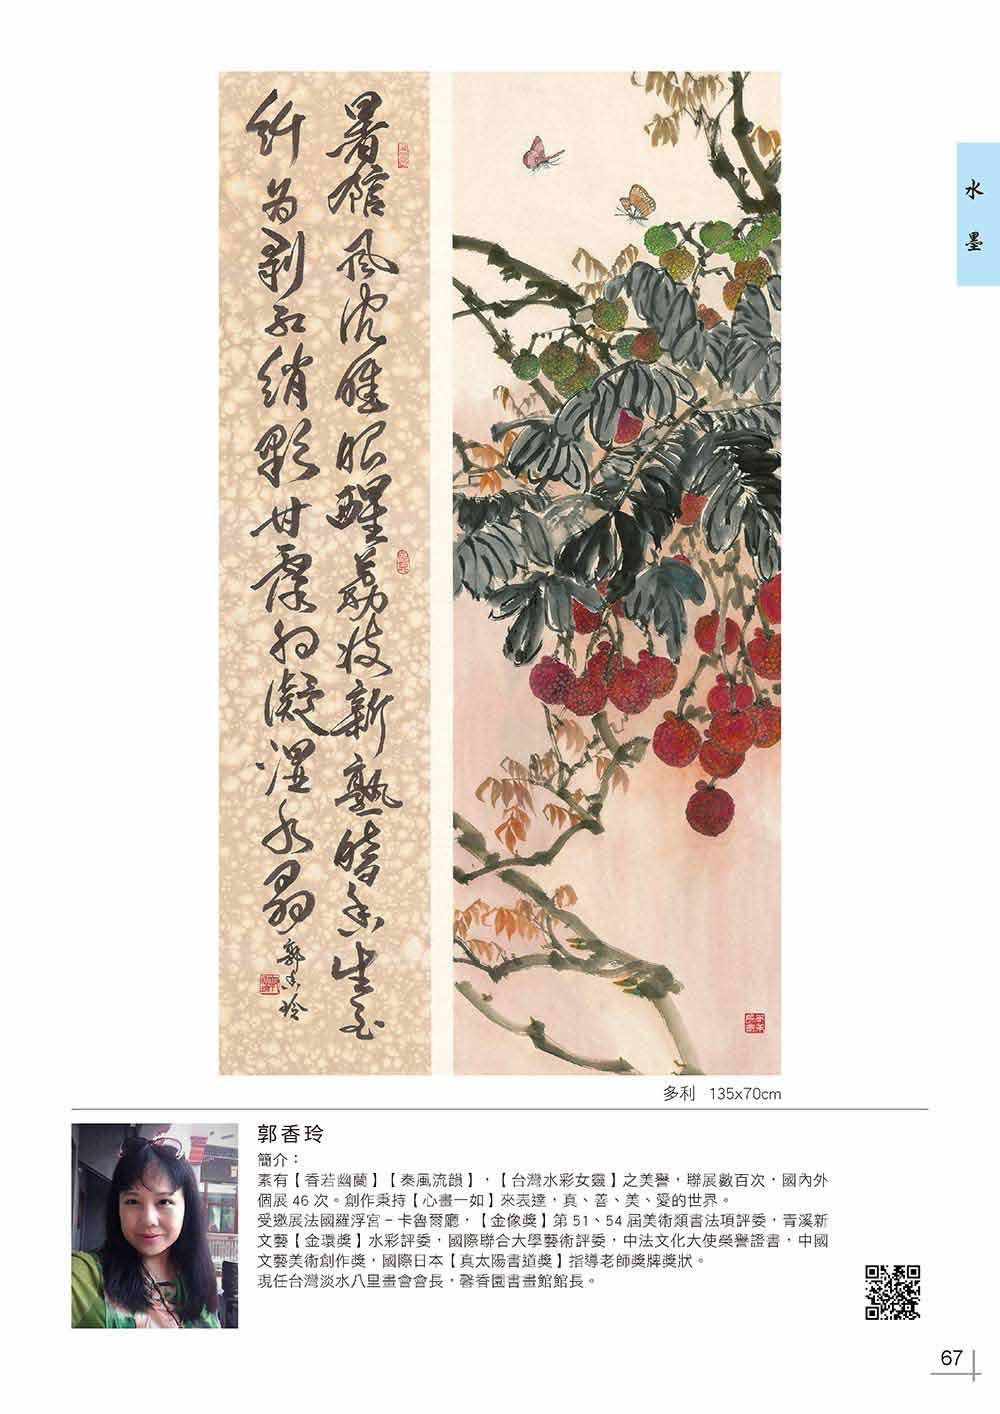 水墨
暑館風沉睡眼醒荔枝新熟暗香生
纖為剝紅綃甘露凝濕水晶
郭香玲
多利 135x70cm
郭香玲
簡介：
素有【香若幽蘭】【泰風流韻】，【台灣水彩女靈】之美譽，聯展數百次，國內外
個展 46 次。創作秉持【心畫一如】來表達，真、善、美、愛的世界。
受邀展法國羅浮宮－卡魯爾廳，【金像獎】第 51、54 屆美術類書法項評委，青溪新
文藝【金環獎】水彩評委，國際聯合大學藝術評委，中法文化大使榮譽證書，中國
文藝美術創作獎，國際日本【真太陽書道獎】指導老師獎牌獎狀。
現任台灣淡水八里畫會會長，馨香園書畫館館長。
67